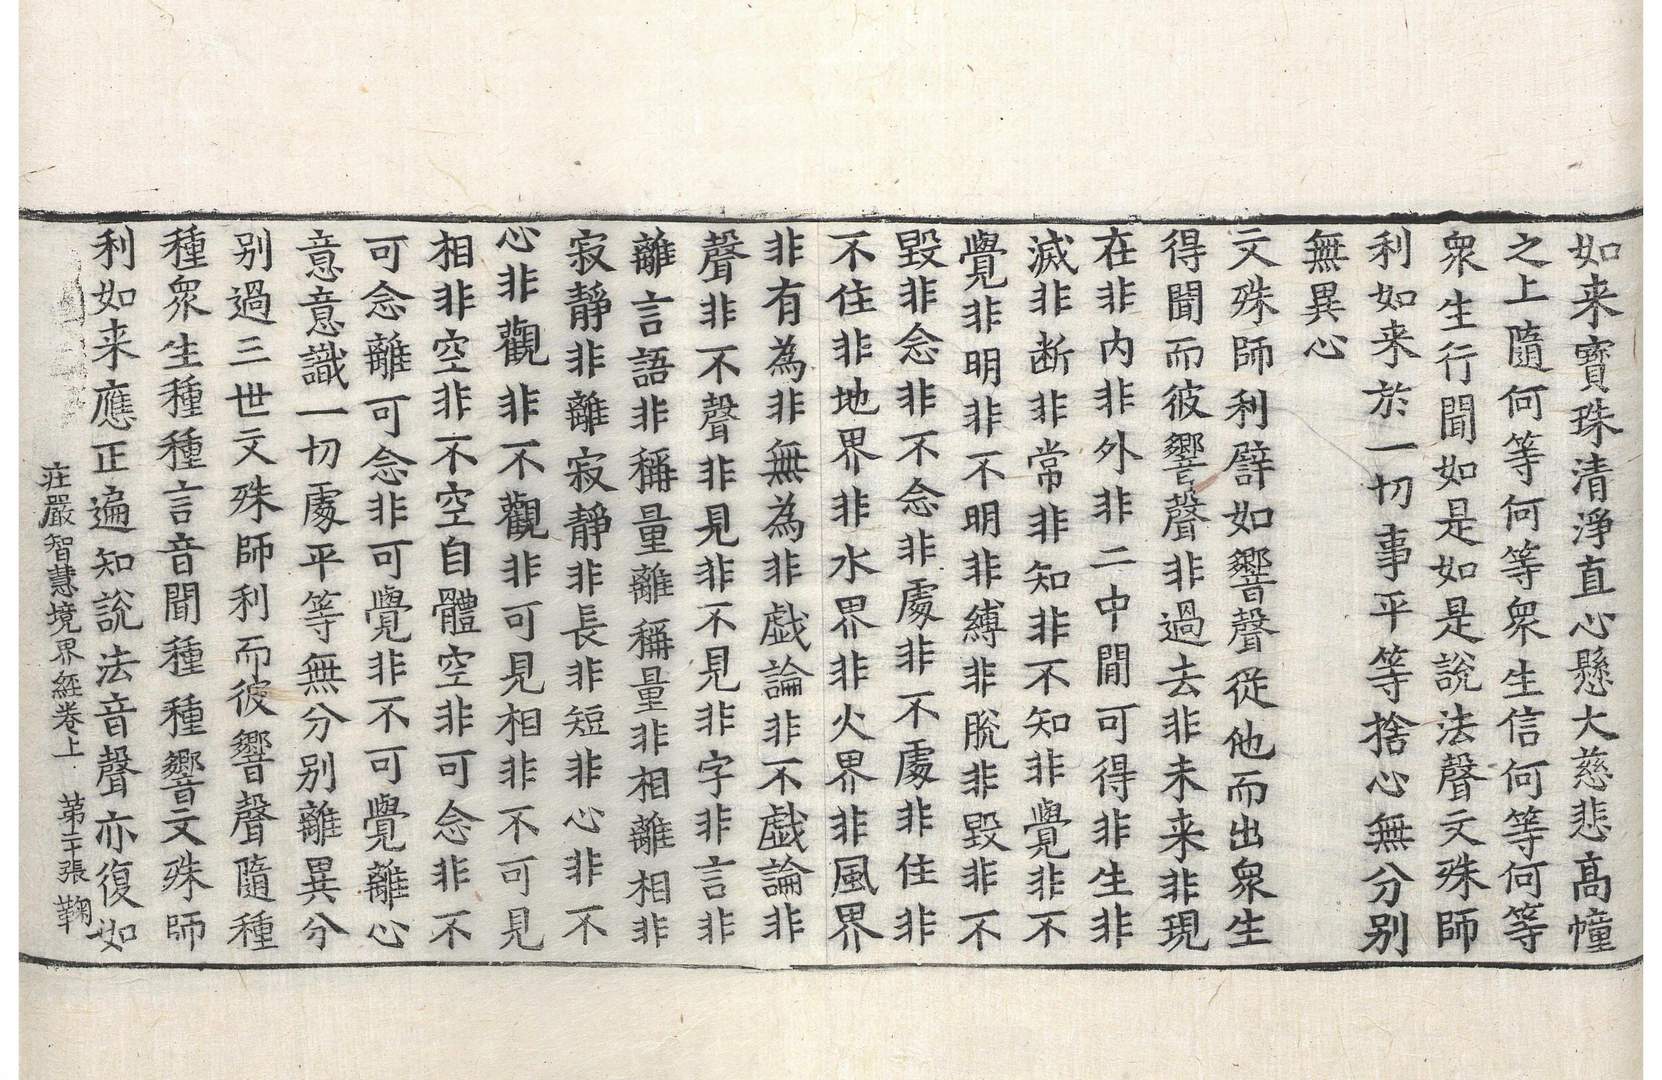 如来寶珠清淨直心懸大慈悲高幢
之上隨何等何等衆生信何等何等
衆生行聞如是如是說法聲文殊師
利如来於一切事平等捨心無分别
無異心
文殊師利譬如響聲從他而出衆生
得聞而彼響聲非過去非未来非現
在非内非外非二中閒可得非生非
滅非断非常非知非不知非覺非不
覺非明非不明非縛非脫非毀非不
毀非念非不念非處非不處非住非
不住非地界非水界非火界非風界
非有為非無為非戯論非不戯論非
聲非不聲非見非不見非字非言非
離言語非稱量離稱量非相離相非
寂靜非離寂靜非長非短非心非不
心非觀非不觀非可見相非不可見
相非空非不空自體空非可念非不
可念離可念非可覺非不可覺離心
意意識一切處平等無分别離異分
别過三世文殊師利而彼響聲隨種
種衆生種種言音聞種種響文殊師
利如来應正遍知說法音聲亦復如
莊嚴智慧境界經卷上 第二十張 鞠